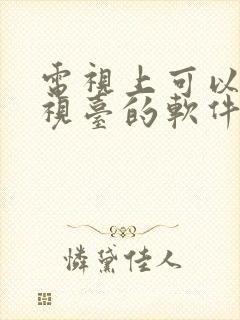 電視上可以
視臺的軟件
憐黛佳人